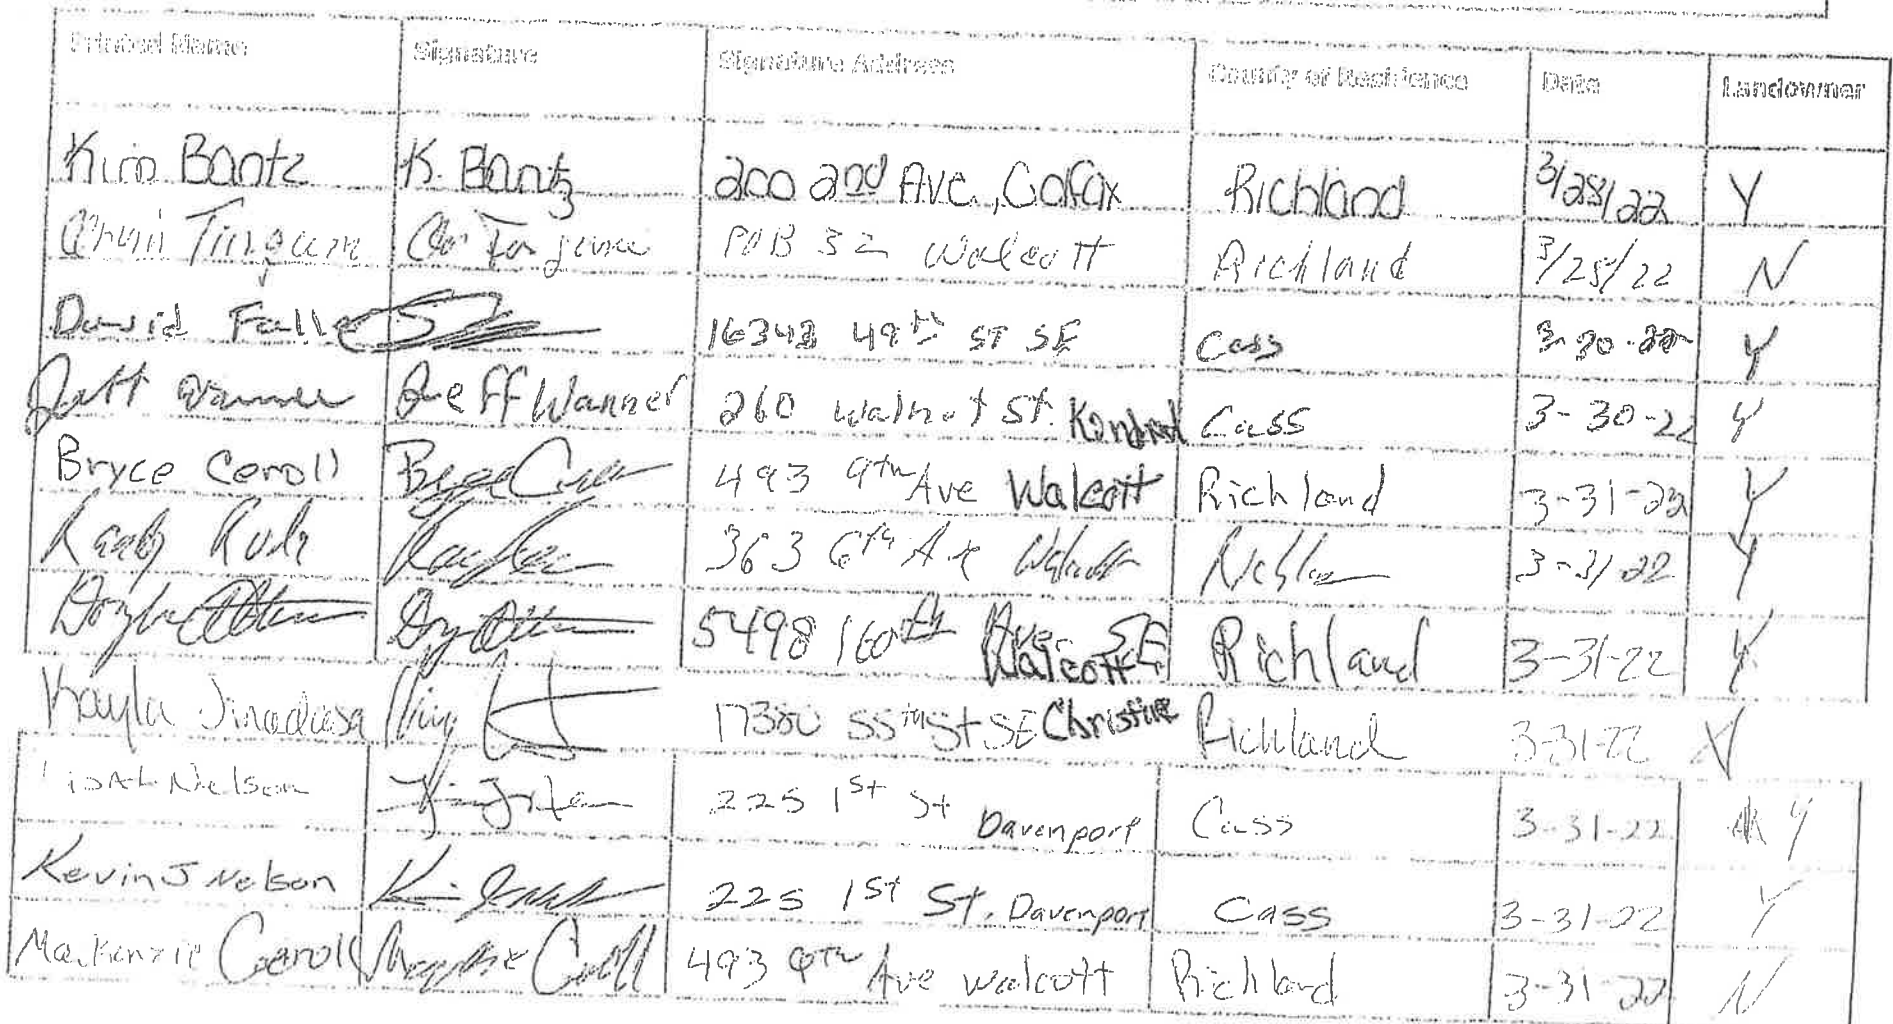 Printed Name Signature Signature Address County of Residence Date Landowner
Kim Bantz K. Bantz 200 2nd Ave, Colfax Richland 3/28/22 Y
POB 32 Walcott Richland 3/28/22 N
David 16343 49th ST SE Cass 3-30-22 Y
Jeff Wanner Jeff Wanner 260 Walnut St. Kindred Cass 3-30-22 Y
Bryce Ceroll Bryce 493 9th Ave Walcott Richland 3-31-22 Y
363 6th Ave Walcott 3-31-22 Y
5498 160th Ave SE Walcott Richland 3-31-22 Y
Kayla 17380 55th St SE Christine Richland 3-31-22
Nielson 225 1st St Davenport Cass 3-31-22 Y
Kevin J Nelson 225 1st St. Davenport Cass 3-31-22 Y
MacKenzie Ceroll 493 9th Ave Walcott Richland 3-31-22 N